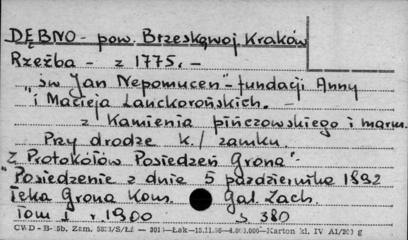 DĘBNO - pow. Brzesk, woj Kraków
Rzeźba - z 1775. -
"św Jan Nepomucen" - fundacji Anny
i Macieja Lanckorońskich. -
z Kamienia pińczowskiego i marm.
Przy drodze k./ zamku
"Z Protokołów Posiedzeń Grona"
"Posiedzenie z dnia 5 października 1892
Teka Grona Kons. Gal. Zach.
Tom I r. 1900 s 380
CWD - B- 5b. Zam. 5823/S/Ł2 — Łak—15.11.56—4.000.000—Karton kl. IV A1/200 g